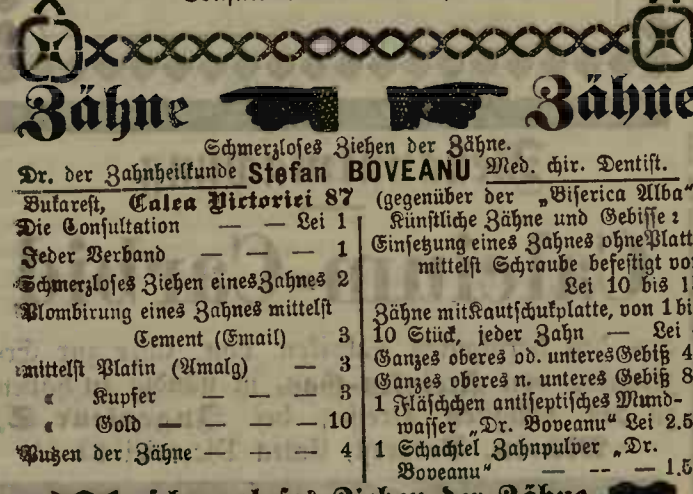 Zähne Zähne
Schmerzloses Ziehen der Zähne.
Dr. der Zahnheilkunde Stefan BOVEANU Med. chir. Dentist.
Bukarest, Calea Victoriei 87
Die Consultation — — Lei 1
Jeder Verband — — — 1
Schmerzloses Ziehen eines Zahnes 2
Plombirung eines Zahnes mittelst
Cement (Email) 3
mittelst Platin (Amalg) — 3
„ Kupfer — — — 3
„ Gold — — — — 10
Putzen der Zähne — — — 4
(gegenüber der „Biserica Alba"
Künstliche Zähne und Gebisse :
Einsetzung eines Zahnes ohne Platt
mittelst Schraube befestigt von
Lei 10 bis 1
Zähne mit Kautschukplatte, von 1 bis
10 Stück, jeder Zahn — Lei
Ganzes oberes od. unteres Gebiß 4
Ganzes oberes n. unteres Gebiß 8
1 Fläschchen antiseptisches Mund-
wasser „Dr. Boveanu" Lei 2.5
1 Schachtel Zahnpulver „Dr.
Boveanu" — -- — 1.5
Ziehen der Zähne